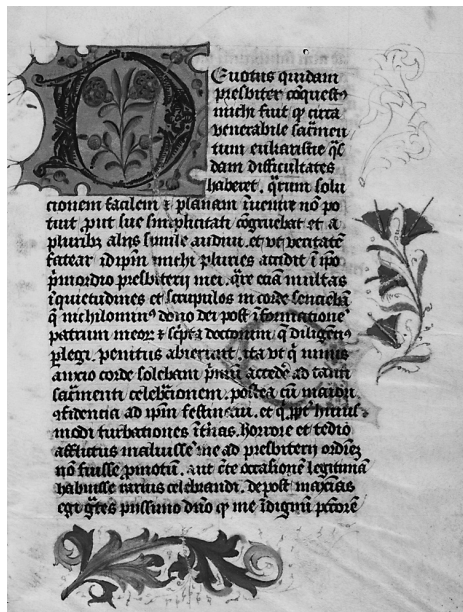 Devotus quidam
presbiter cõquest9
michi fuit qꝫ circa
venerabile sac̃men
tum eukaristie q̃s
dam difficultates
haberet. q̃rum solu
cionem facilem ⁊ planam ĩuenire nõ po
tuit ꝓut sue simplicitati cõgruebat et a
pluribꝫ alijs simile audiui. et vt veritatẽ
fatear idip̃m michi pluries accidit ĩ ip̃o
p̃mordio presbiterij mei. q̃re eciã multas
ĩquietudines et scrupulos in corde senciebã
q̃ nichilomin9 dono dei post ĩformationẽ
patrum meoꝝ ⁊ doctorum. q̃ diligen9
ꝑlegi. penitus abierunt. ita vt q̃ nimis
anxio corde solebam p̃rim accedẽ ad tanti
sac̃menti celeb̃cionem. postea cũ maiori
ꝯfidencia ad ip̃m festinaui. et q̃ ꝓpt̃ huius
modi turbationes ĩt̃nas. horrore et tedio
afflictus maluissẽ me ad presbiterij ordinẽ
nõ fuisse ꝓmotũ. aut c̃te occasionẽ legitimã
habuisse rarius celebrandi. depost maximas
egi g̃tes pijssimo dño qꝫ me ĩdignũ pc̃torẽ